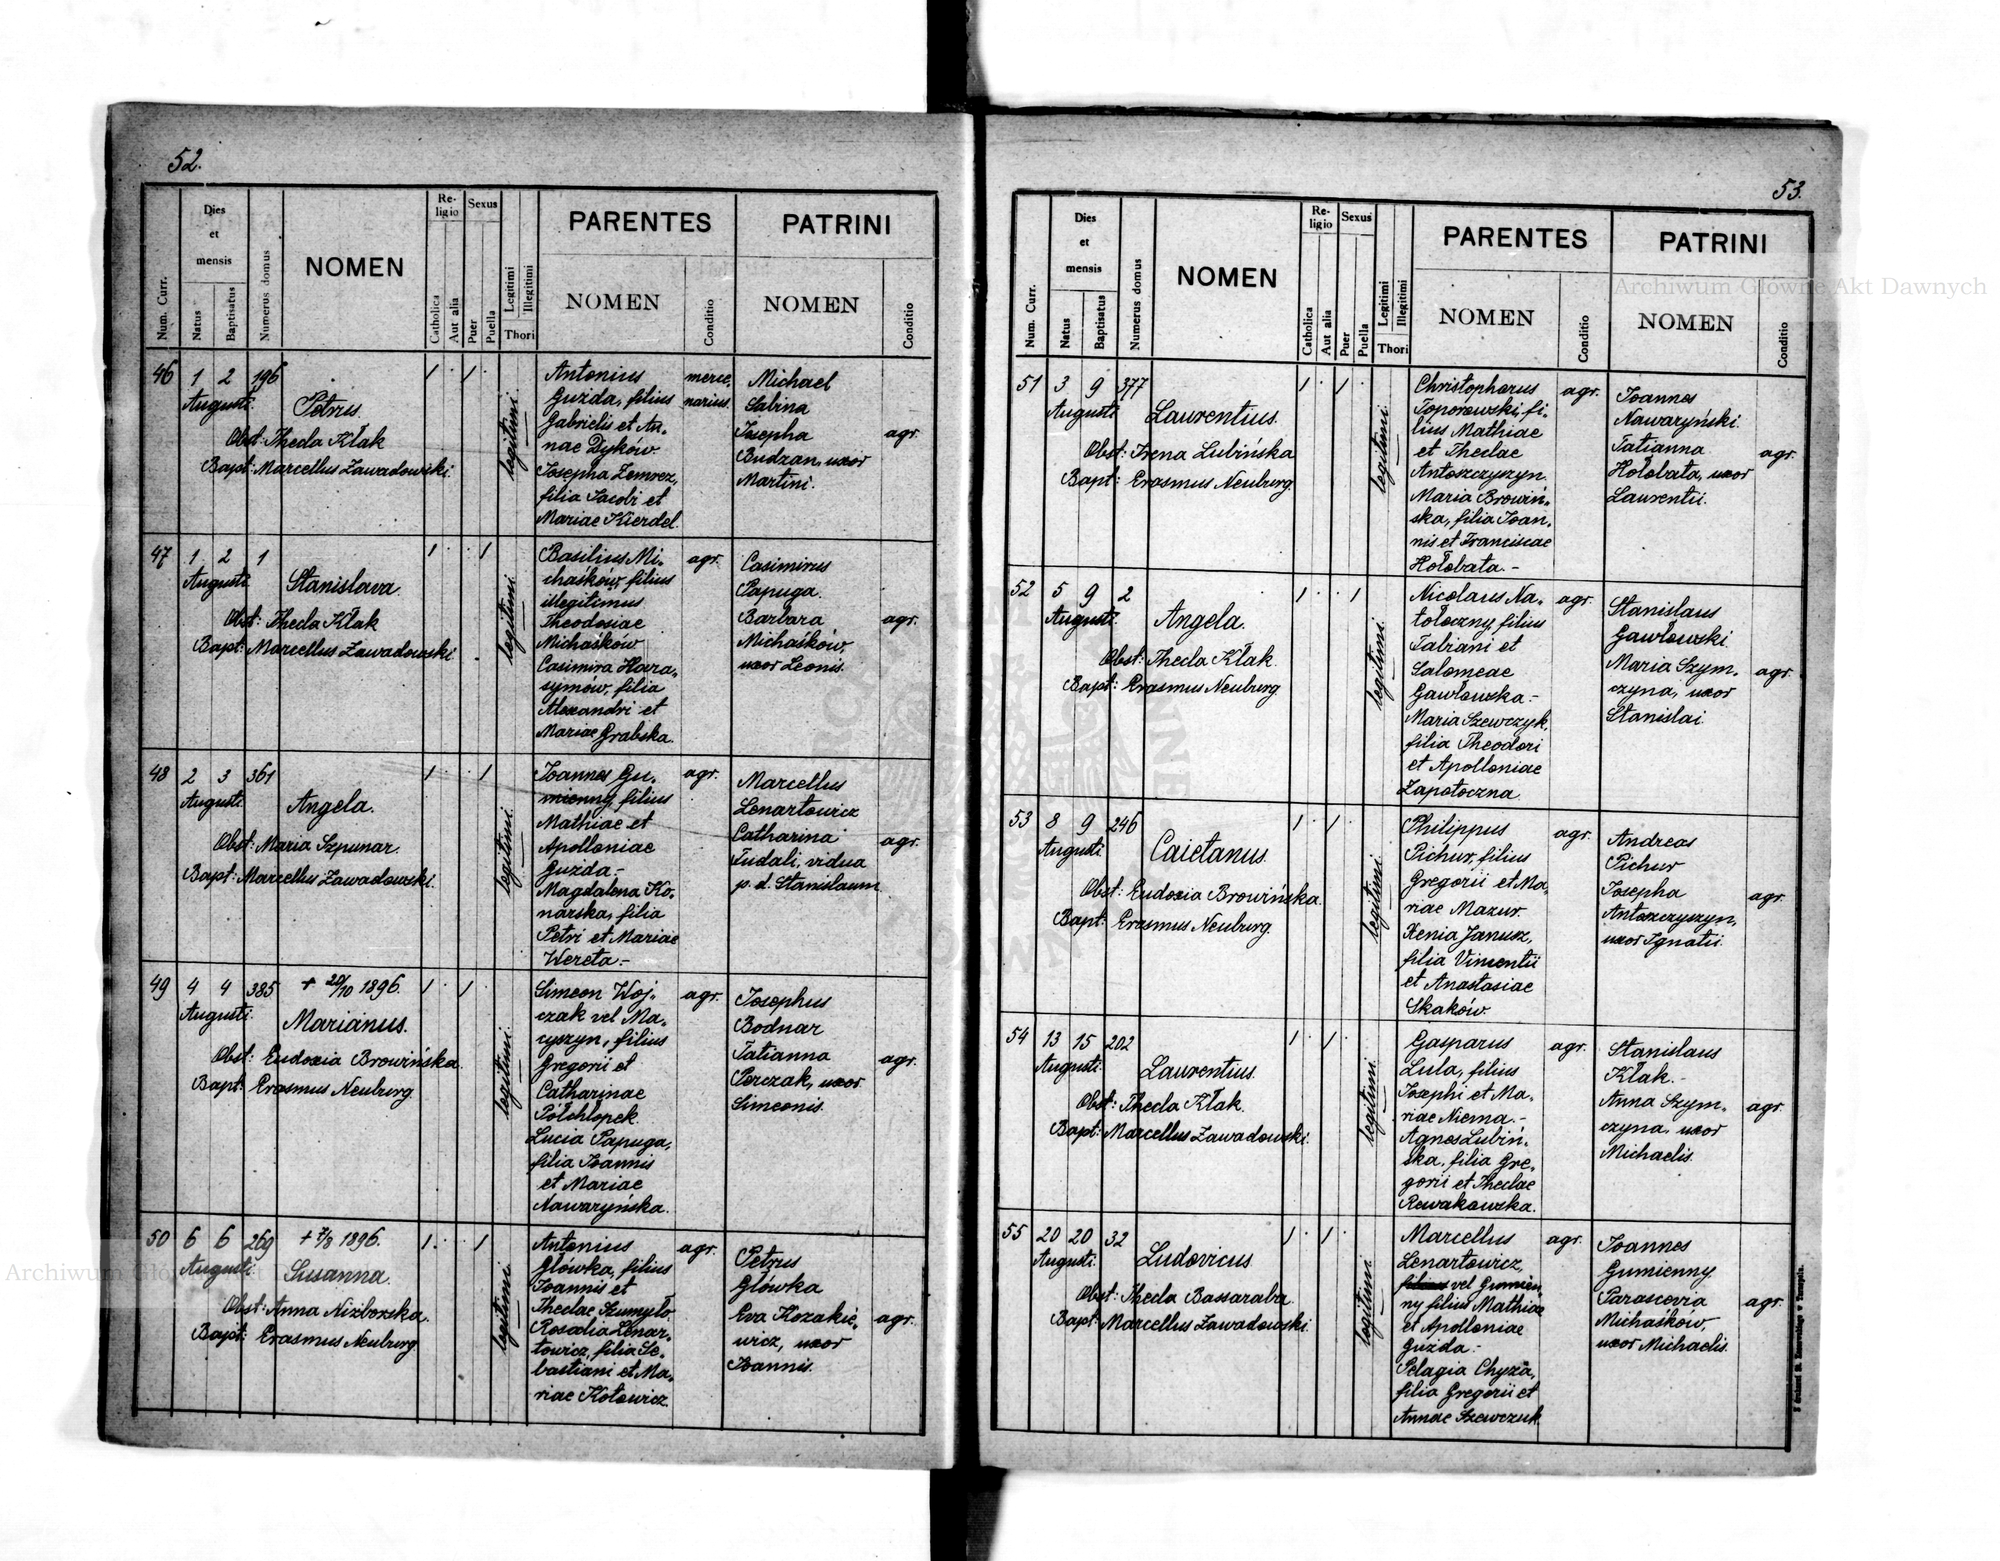 52.
Num. Curr.
Dies et mensis
Natus
Baptisatus
Numerus domus
NOMEN
Religio
Catholica
Aut alia
Sexus
Puer
Puella
Legitimi
Illegitimi
Thori
PARENTES
NOMEN
Conditio
PATRINI
NOMEN
Conditio
46 1 2 196
Augusti.
Petrus.
Obst: Thecla Kłak
Bapt: Marcellus Zawadowski.
legitimi
Antonius
Guzda, filius
Gabrielis et An-
nae Dyków
Josepha Zemrez,
filia Jacobi et
Mariae Kierdel.
merce-
narius.
Michael
Sabina
Josepha
Budzan, uxor
Martini.
agr.
47 1 2 1
Augusti.
Stanislava.
Obst: Thecla Kłak
Bapt: Marcellus Zawadowski.
legitimi
Basilius Mi-
chaśków, filius
illegitimus
Theodosiae
Michaśków
Casimira Hara-
symów, filia
Alexandri et
Mariae Grabska.
agr.
Casimirus
Papuga.
Barbara
Michaśków,
uxor Leonis.
agr.
48 2 3 361
Augusti.
Angela.
Obst: Maria Szpunar.
Bapt: Marcellus Zawadowski.
legitimi.
Joannes Gu-
mienny, filius
Mathiae et
Apolloniae
Guzda.-
Magdalena Ko-
narska, filia
Petri et Mariae
Wereta.-
agr.
Marcellus
Lenartowicz
Catharina
Fudali, vidua
p. d. Stanislaum
agr.
49 4 4 385 + 20/10 1896.
Augusti.
Marianus.
Obst: Eudoxia Browińska.
Bapt: Erasmus Neuburg.
legitimi.
Simeon Woj-
czak vel Ma-
cyszyn, filius
Gregorii et
Catharinae
Półchłopek.
Lucia Papuga,
filia Joannis
et Mariae
Nawaryńska.
agr.
Josephus
Bodnar
Tatianna
Perczak, uxor
Simeonis.
agr.
50 6 6 269 + 7/8 1896.
Augusti.
Susanna.
Obst: Anna Niżborska.
Bapt: Erasmus Neuburg.
legitimi
Antonius
Główka, filius
Joannis et
Theclae Szumyło.
Rosalia Lenar-
towicz, filia Se-
bastiani et Ma-
riae Kotowicz.
agr.
Petrus
Główka
Eva Kozakie-
wicz, uxor
Joannis.
agr.
53.
Num. Curr.
Dies et mensis
Natus
Baptisatus
Numerus domus
NOMEN
Religio
Catholica
Aut alia
Sexus
Puer
Puella
Legitimi
Illegitimi
Thori
PARENTES
NOMEN
Conditio
PATRINI
NOMEN
Conditio
51 3 9 377
Augusti.
Laurentius.
Obst: Irena Lubińska
Bapt: Erasmus Neuburg.
legitimi.
Christophorus
Toporowski, fi-
lius Mathiae
et Theclae
Antoszczyszyn.
Maria Browiń-
ska, filia Joan-
nis et Franciscae
Hołobata.-
agr.
Joannes
Nawaryński.
Tatianna
Hołobata, uxor
Laurentii.
agr.
52 5 9 2
Augusti.
Angela.
Obst: Thecla Kłak.
Bapt: Erasmus Neuburg.
legitimi.
Nicolaus Na-
tołoczny, filius
Fabiani et
Salomeae
Gawłowska.-
Maria Szewczyk,
filia Theodori
et Apolloniae
Zapotoczna.
agr.
Stanislaus
Gawłowski.
Maria Szym-
czyna, uxor
Stanislai.
agr.
53 8 9 246
Augusti.
Caietanus.
Obst: Eudoxia Browińska.
Bapt: Erasmus Neuburg.
legitimi.
Philippus
Pichur, filius
Gregorii et Ma-
riae Mazur.
Xenia Janusz,
filia Vincentii
et Anastasiae
Skaków.
agr.
Andreas
Pichur
Josepha
Antoszczyszyn,
uxor Ignatii.
agr.
54 13 15 202
Augusti.
Laurentius.
Obst: Thecla Kłak.
Bapt: Marcellus Zawadowski.
legitimi.
Gasparus
Lula, filius
Josephi et Ma-
riae Niema.-
Agnes Lubiń-
ska, filia Gre-
gorii et Theclae
Rewakowska.
agr.
Stanislaus
Kłak.-
Anna Szym-
czyna, uxor
Michaelis.
agr.
55 20 20 32
Augusti.
Ludovicus.
Obst: Thecla Bassaraba.
Bapt: Marcellus Zawadowski.
legitimi
Marcellus
Lenartowicz,
filius vel Gumien-
ny filius Mathiae
et Apolloniae
Guzda.-
Pelagia Chyża,
filia Gregorii et
Annae Szewczuk.
agr.
Joannes
Gumienny.
Parascevia
Michaśków,
uxor Michaelis.
agr.
Archiwum Główne Akt Dawnych
Archiwum Główne Akt Dawnych